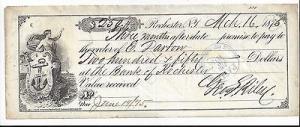 $250.00 Rochester, N.Y. Mch. 16, 1875
Three months after date promise to pay to
the order of E. Darton
Two hundred & fifty Dollars
at The Bank of Rochester
Value received
Due June